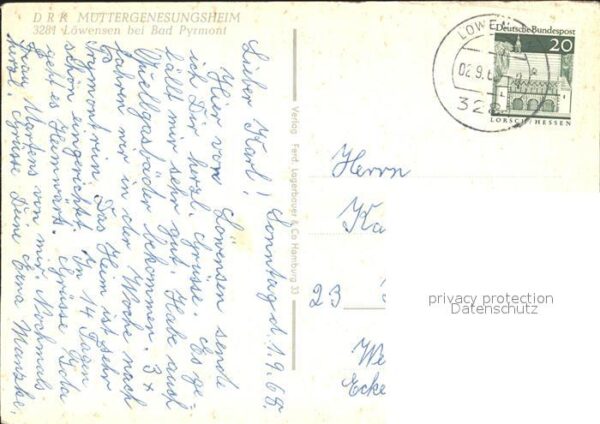 D R K MÜTTERGENESUNGSHEIM
3281 Löwensen bei Bad Pyrmont
Lieber Karl! Sonntag d. 1.9.68.
Hier von Löwensen sende
ich Dir herzl. Grüsse. Es ge-
fällt mir sehr gut. Habe auch
Quellgasbäder bekommen. 3 x
fahren wir in der Woche nach
Pyrmont rein. Das Heim ist sehr
schön eingerichtet. In 14 Tagen
geht es Heimwärts. Grüsse
Frau Martens von mir. Nochmals
herzl. Grüsse Deine Erna
Verlag Ferd. Lagerbauer & Co Hamburg 33
LÖWEN
02.9.6
328
Deutsche Bundespost
20
LORSCH/HESSEN
Herrn
Ka
23
We
Ecke
privacy protection
Datenschutz